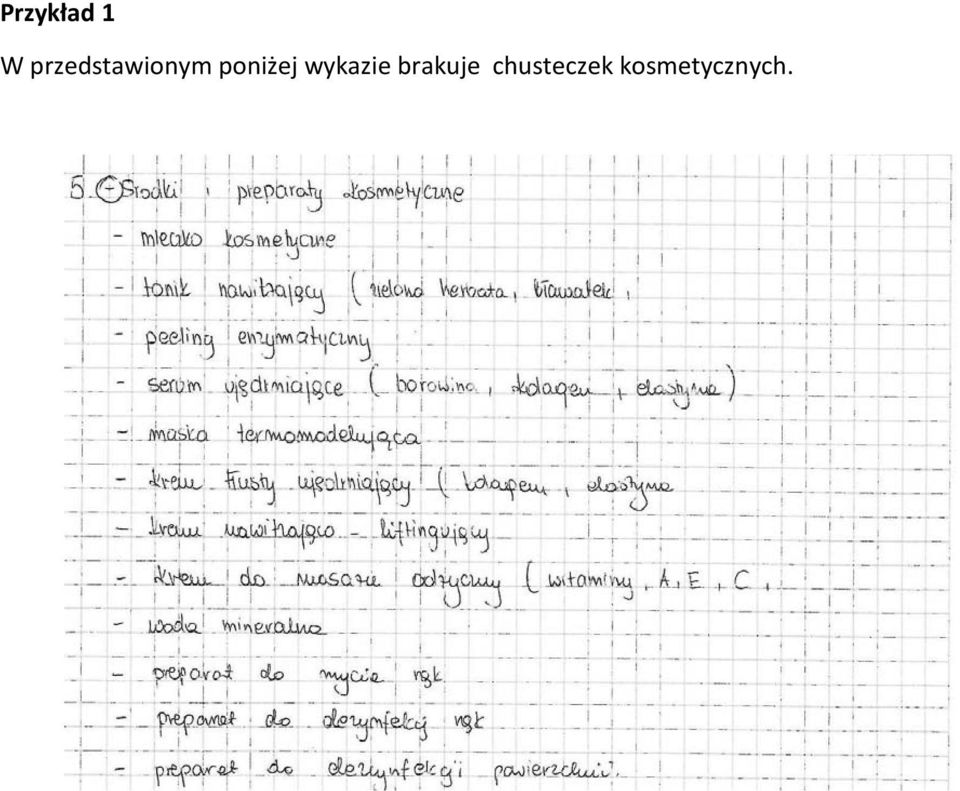 Przykład 1
W przedstawionym poniżej wykazie brakuje chusteczek kosmetycznych.
5. - Środki i preparaty kosmetyczne
- mleczko kosmetyczne
- tonik nawilżający (zielona herbata, bławatek,
- peeling enzymatyczny
- serum ujędrniające (borowina, kolagen, elastyna)
- maska termomodelująca
- krem tłusty ujędrniający (kolagen, elastyna
- krem nawilżająco - liftingujący
- krem do masażu odżywczy (witaminy A, E, C,
- woda mineralna
- preparat do mycia rąk
- preparat do dezynfekcji rąk
- preparat do dezynfekcji powierzchni.